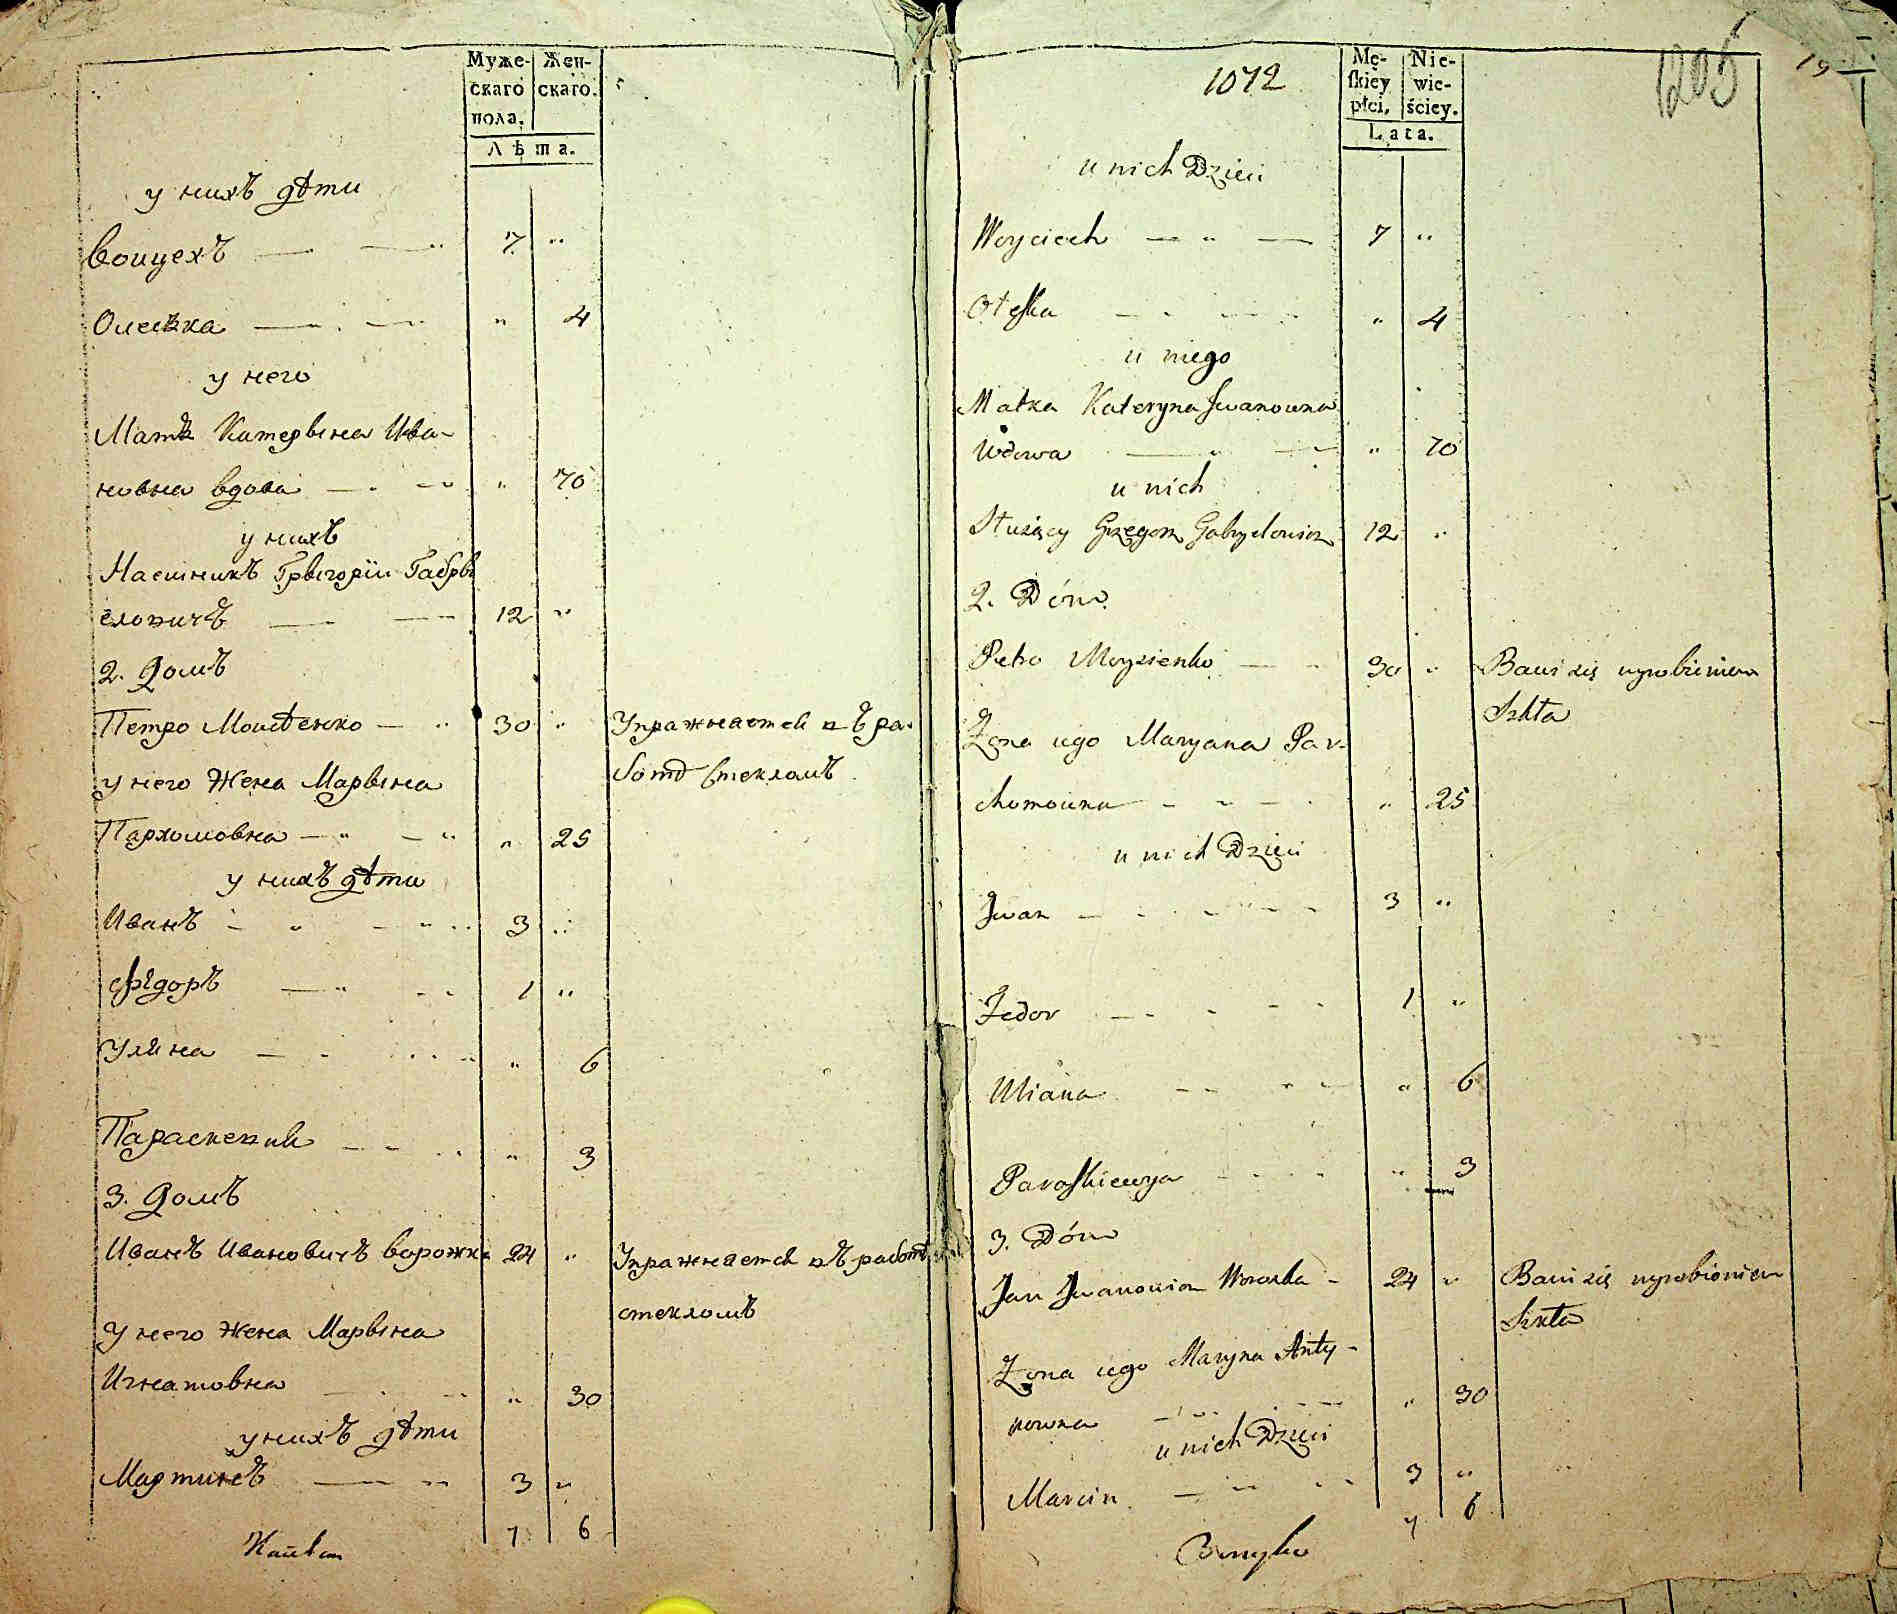 Муже-
скаго
пола.
Жен-
скаго.
Лѣта.
у нихъ дѣти
Воицехъ — — „ 7 „
Олешка — . — „ 4
у него
Матка Катерына Ива-
новна вдова — . — „ „ 70
у нихъ
Наемникъ Грыгорїи Габры
еловичъ — — 12 „
2. Домъ
Петро Моисѣенко — „ 30 „ Упражняется въ ра-
ботѣ стекломъ
у него Жена Марьяна
Пархомовна — „ — „ „ 25
у нихъ дѣти
Иванъ — „ — „ 3 „
Фѣдоръ — „ — 1 „
Уляна — - „ 6
Параскевия — - „ 3
3. Домъ
Иванъ Ивановичъ Ворожка 24 „ Упражняется въ работѣ
стекломъ
у него Жена Марына
Игнатовна — „ 30
у нихъ дѣти
Мартинъ — — „ 3 „
7 6
1072
1205
19
Mę-
skiey
płci.
Nie-
wie-
ściey.
Lata.
u nich Dzieci
Woyciech — „ — 7 „
u niego 4
Matka Kateryna Iwanowna
Wdowa — „ — „ 70
u nich
Służący Grzegorz Gabryelowicz 12 „
2. Dóm
Petro Moysienko — „ 30 „ Bawi się wyrobieniem
Szkła
Żona iego Maryana Par-
chomowna — „ — „ 25
u nich Dzieci
Iwan — - — 3 „
Fedor — - 1 „
Uliana — - „ 6
Paraskiewya - - „ 3
3. Dóm
Jan Iwanowicz Worożka — 24 „ Bawi się wyrobieniem
Szkła
Żona iego Maryna Anty-
powna — „ 30
u nich Dzieci
Marcin — „ 3 „
7 6